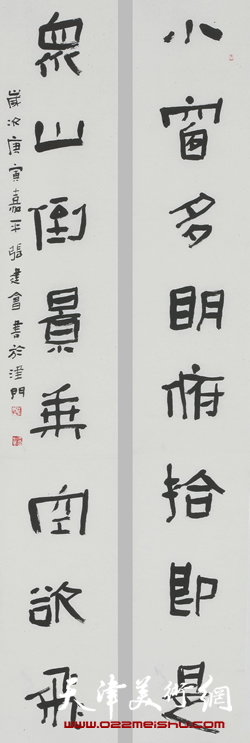 小窗多明俯拾即是
衆山倒景乘空欲飛
歲次庚寅嘉平張建會書於津門
天津美術網
www.022meishu.com